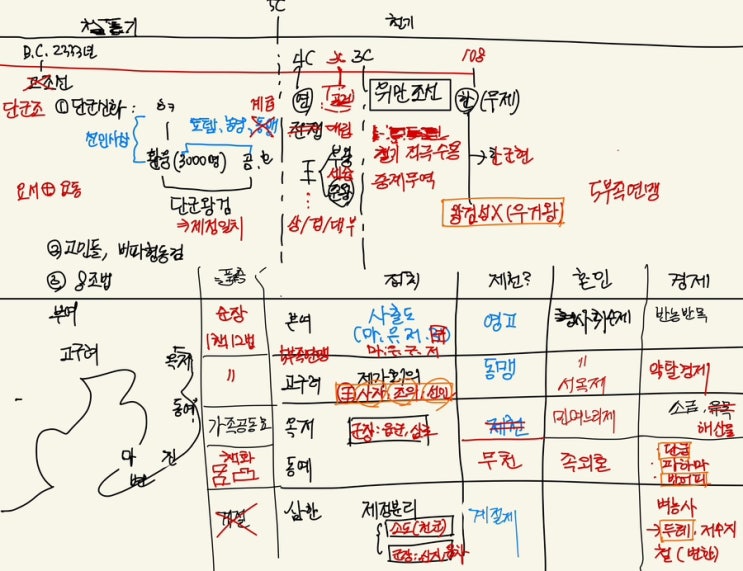 5C
철기
B.C. 2333년
4C 3C 108
고조선
연 위만조선 한 (무제)
단군조 ① 단군신화: 계급
선민사상 토템, 농경,
환웅 (3000명) 곰, 호
王 부왕 철기 적극수용 → 한군현
준왕 중계무역
요서 ⊕ 요동 5부족연맹
단군왕검
⇒ 제정일치 상/경/대부 왕검성X (우거왕)
② 고인돌, 비파형동검
③ 8조법
풍습 정치 제천? 혼인 경제
부여 순장 부여 사출도 영고 반농반목
1책12법 (마. 우. 저. 구)
마. 우. 구. 저
고구려 〃 고구려 제가회의 동맹 〃 약탈경제
王 사자, 조의, 선인 서옥제
옥저 가족공동묘 옥저 군장: 읍군, 삼로 민며느리제 소금,
해산물
동예 책화 동예 무천 족외혼 단궁
과하마
반어피
마 진
변
삼한 제정분리 계절제 벼농사
소도(천군) → 두레. 저수지
군장: 신지, 읍차 철 (변한)